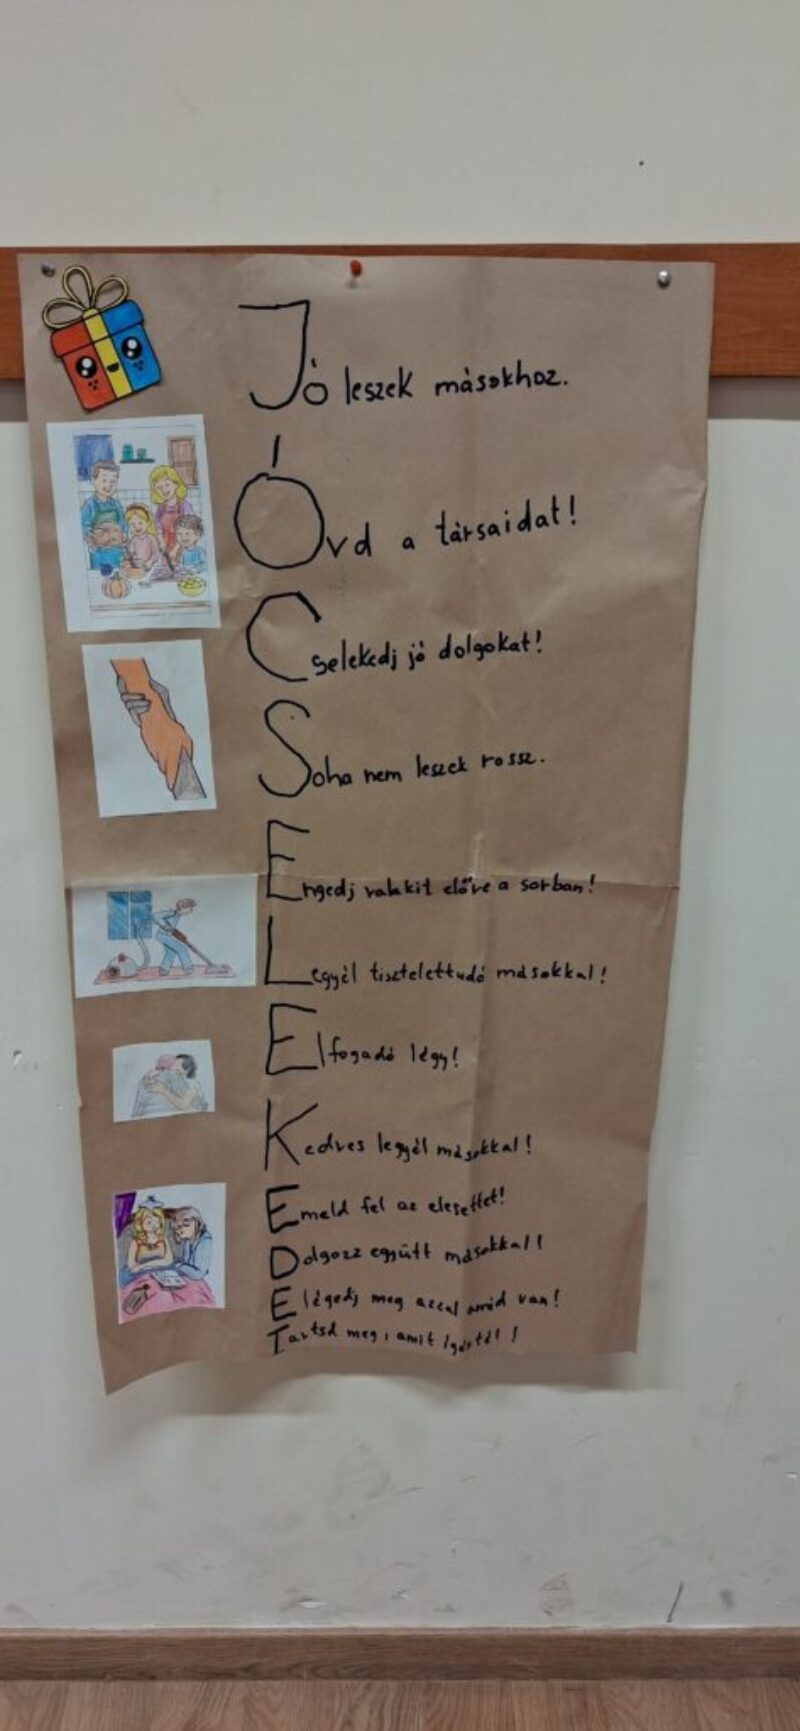 Jó leszek másokhoz.
Óvd a társaidat!
Cselekedj jó dolgokat!
Soha nem leszek rossz.
Engedj valakit előre a sorban!
Legyél tisztelettudó másokkal!
Elfogadó légy!
Kedves legyél másokkal!
Emeld fel az elesettet!
Dolgozz együtt másokkal!
Elégedj meg azzal amid van!
Tartsd meg, amit ígértél!